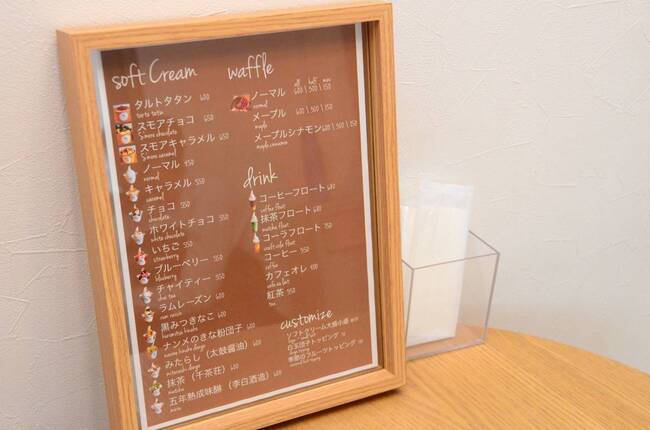 soft Cream
タルトタタン 600
スモアチョコ 650
S'more chocolate
スモアキャラメル 650
S'more caramel
ノーマル 450
normal
キャラメル 550
caramel
チョコ 550
chocolate
ホワイトチョコ 550
white chocolate
いちご 550
strawberry
ブルーベリー 550
blueberry
チャイティー 550
chai tea
ラムレーズン 600
rum raisin
黒みつきなこ 600
ナンメのきな粉団子 600
みたらし（太鼓醤油） 600
抹茶（千茶荘） 600
matcha
五年熟成味醂（李白酒造） 600
mirin
waffle
all half mini
ノーマル 600 | 300 | 150
normal
メープル 600 | 300 | 150
maple
メープルシナモン 600 | 300 | 150
maple cinnamon
drink
コーヒーフロート 650
coffee float
抹茶フロート 600
matcha float
コーラフロート 550
コーヒー 350
coffee
カフェオレ 400
cafe au lait
紅茶 350
tea
customize
ソフトクリーム大盛小盛
白玉団子トッピング
季節のフルーツトッピング